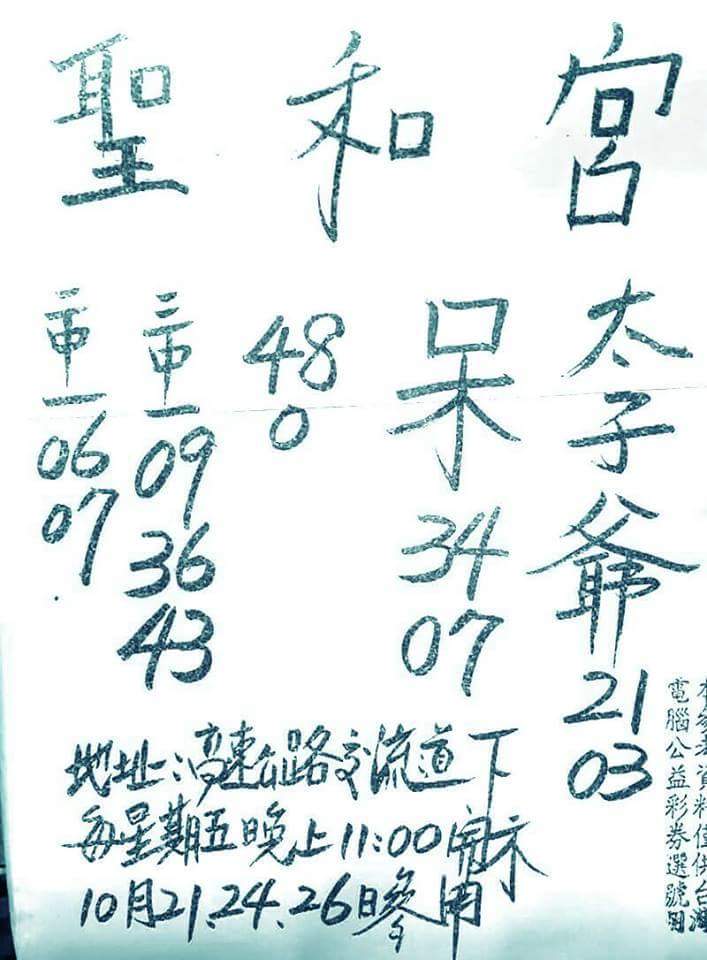 聖和宮
太子爺
21
03
呆
34
07
48
0
09
36
43
06
07
地址:高速公路交流道下
每星期五晚上11:00開示
10月21、24、26日參用
本參考資料僅供台灣
電腦公益彩券選號用